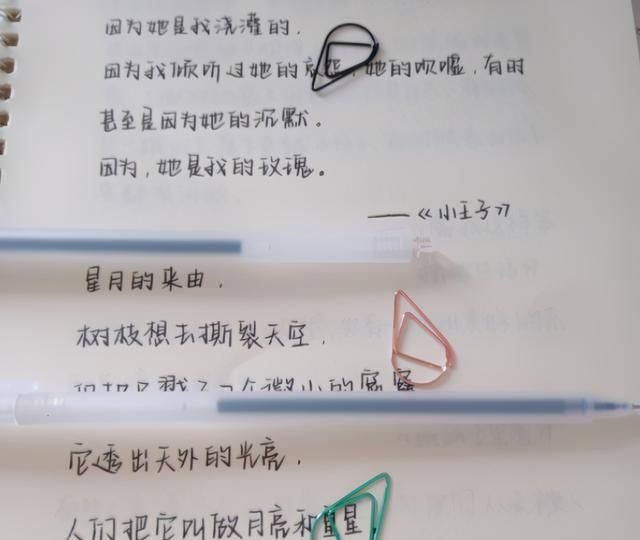 因为她是我浇灌的，
因为我倾听过她的哀怨，她的吹嘘，有时
甚至是因为她的沉默。
因为，她是我的玫瑰。
——《小王子》
星月的来由，
树枝想去撕裂天空，
但却只戳了几个微小的窟窿
它透出天外的光亮，
人们把它叫做月亮和星星，